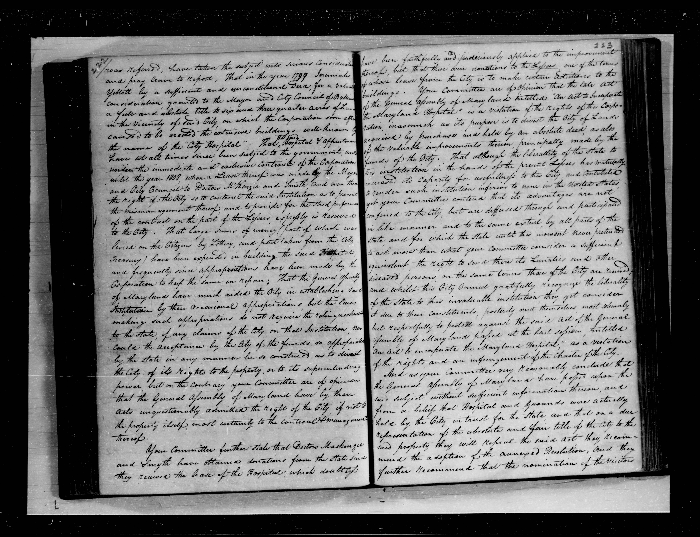 223
was referred, have taken the subject into serious consideration
and pray leave to report, That in the year 1799 Jeremiah
Yellott by a sufficient and unconditional Deed for a valuable
consideration granted to the Mayor and City Council of Baltimore
a full and absolute title to seven three quarter acres of Land
in the vicinity of the City on which the Corporation soon after
caused to be erected the extensive buildings well known by
the name of the City Hospital That Hospital & appurtenances
have at all times since been subject to the government and
under the immediate and exclusive controul of the Corporation
until the year 1808 when a Lease thereof was made by the Mayor
and City Council to Doctors McKenzie and Smith and
the right of the City so to control the said Institution as to
the management thereof and to provide for the due performance
of the contract on the part of the Lessees
to the City. That large sums of money part of which was
levied on the Citizens by Lottery, and part taken from the City
Treasury have been expended in building the said
and frequently since appropriations have been made by the
Corporation to keep the same in repair, That the General Assembly
of Maryland have much aided the City in establishing said
Institution by their occasional appropriations but the laws
making such appropriations do not require the relinquishment
to the State, of any claims of the City on that Institution, nor
could the acceptance by the City of the funds so appropriated
by the state in any manner be so construed as to divest
the City of its rights to the property, or to its superintending
power but on the contrary your Committee are of opinion
that the General Assembly of Maryland have by these
Acts unquestionably admitted the right of the City if not to
the property itself, most certainly to the control & management
thereof
Your Committee further state that Doctors Mackenzie
and Smyth have obtained donations from the State since
they received the lease of the Hospital which donations
have been faithfully and judiciously applied to the improvement
thereof, but that their own conditions to the Lessees one of the terms
of whose lease from the City is to make certain extensions to the
buildings. Your Committee are of Opinion that the late act
of the General Assembly of Maryland entitled An act to Incorporate
the Maryland Hospital is a violation of the rights of this Corporation
inasmuch as its purport is to divest the City of Land
acquired by purchase and held by an absolute deed as also
of the valuable improvements thereon principally made by the
funds of the City. That although the liberality of the State to
this institution in the hands of the present Lessees has materially
increased its capacity for usefulness to the City and established
it as a such institution inferior to none in the United States
yet your Committee contend that its advantages are not
confined to the City but are diffused through and participated
in like manner and to the same extent by all parts of the
state and for which the State until this moment never pretended
to ask more than what your Committee consider a sufficient
equivalent the right to send there its Lunatics and other
diseased persons on the same terms those of the City are received
and whilst this City Council gratefully recognize the liberality
of the State to this invaluable institution they yet consider
it due to their constituents, posterity and themselves most solemnly
but respectfully to protest against the said Act of the General
Assembly of Maryland passed at the last session, entitled
An act to incorporate the Maryland Hospital, as a violation
of the rights and an infringement of the Charter of the City.
And as your Committee very reasonably conclude that
the General Assembly of Maryland have passed upon the
said subject without sufficient information thereon, and
from a belief that Hospital and grounds were actually
held by the City in trust for the State and that on a due
representation of the absolute and fair title of the City to the
said property they will repeal the said act they recommend
the adoption of the annexed Resolution, and they
further recommend that the nomination of the visitors